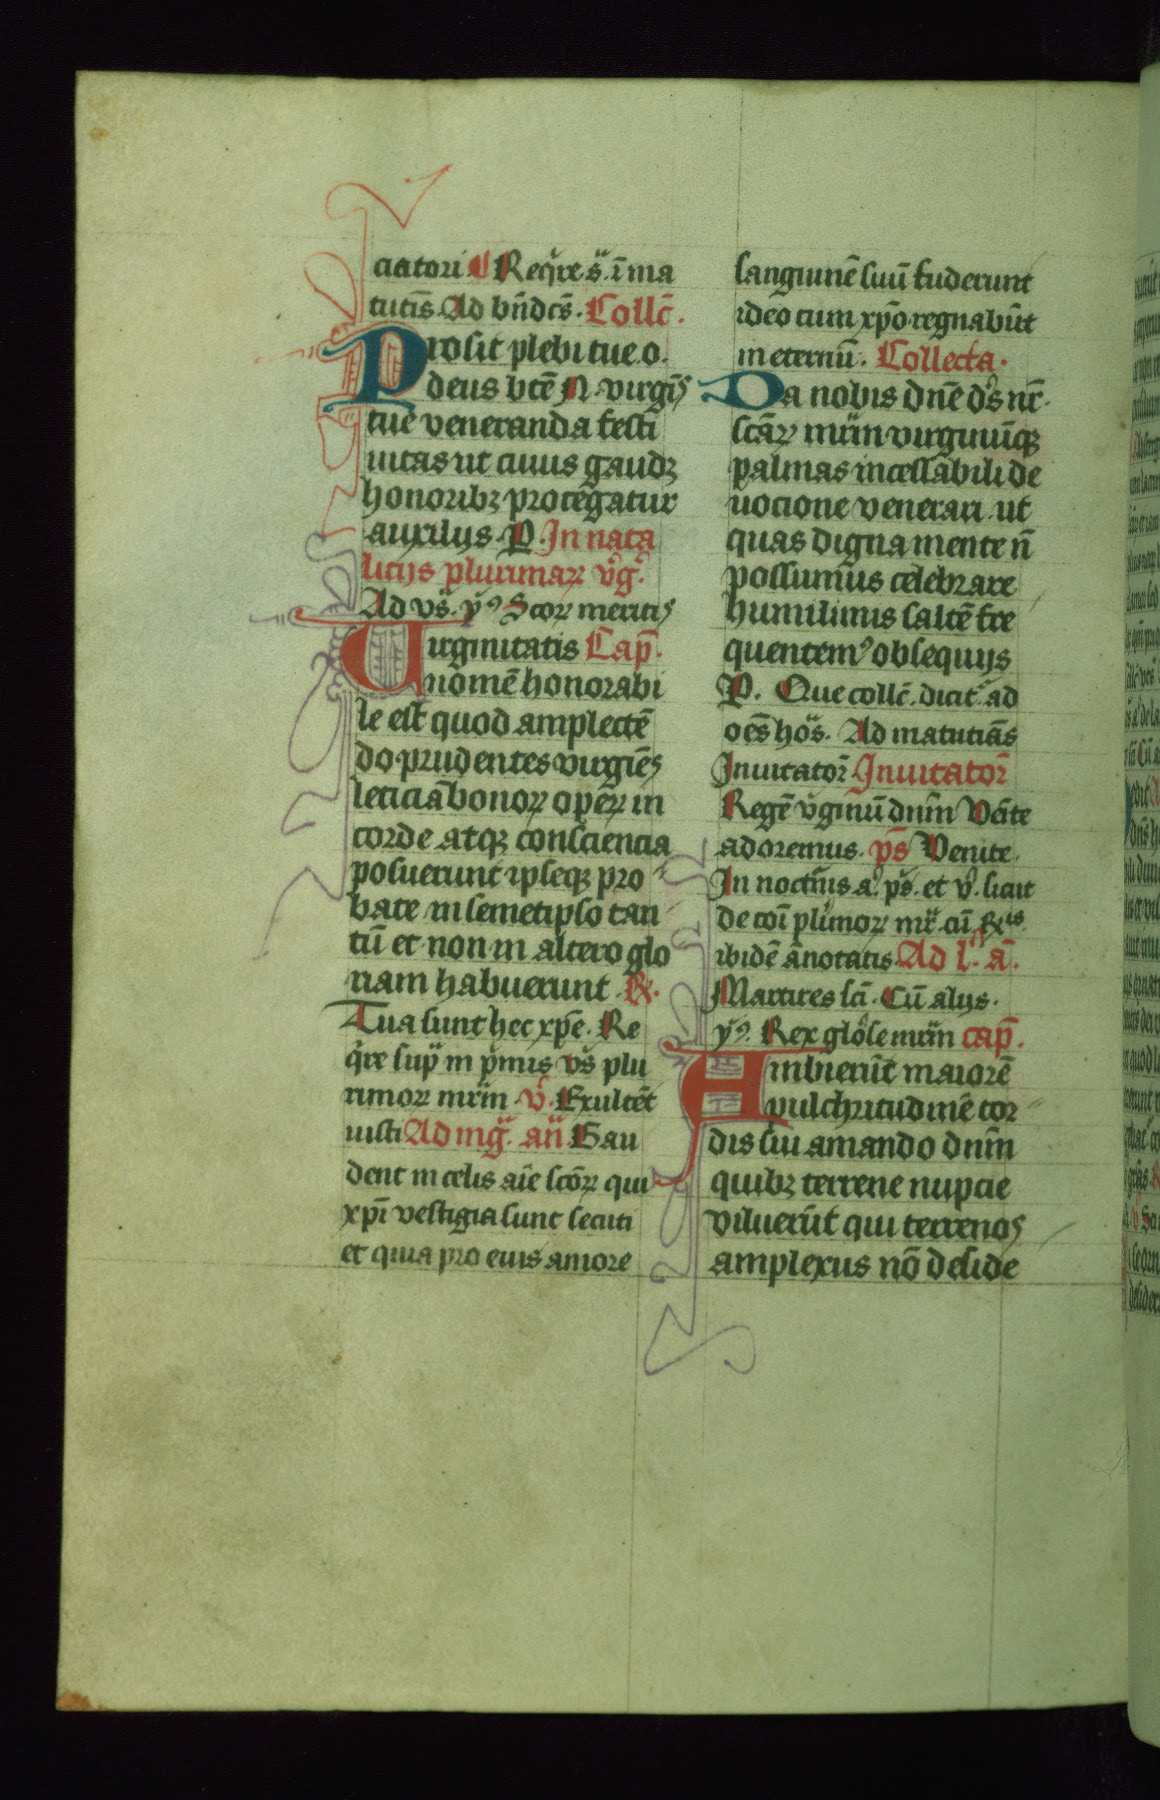 ciatori Reqͥre s̈. ī ma
tutīs Ad bn̄dcs̄. Collc̄.
Prosit plebi tue o.
deus btē N. virgīs
tue veneranda festi
uitas ut cuius gaudꝫ
honoribꝫ protegatur
auxilijs. P. In nata
licijs plurimaꝝ vͦgͥ.
Ad vs̄. ꝟꝰ Scoꝝ meritis
Virginitatis Cap̄.
nomē honorabi
le est quod amplectē
do prudentes virgiēs
leticiā bonoꝝ opeꝝ in
corde atqꝫ consciencia
posuerunt ipseqꝫ pro
bate in semetipso tan
tū et non in altero glo
riam habuerunt. R̷.
Tua sunt hec xp̄e. Re
qͥre sup̄ in pͥmis vs̄ plu
rimoꝝ mr̄im v̄. Exultēt
iusti Ad mg̈. an̄ Gau
dent in celis aīe scōꝝ qui
xp̄i vestigia sunt secuti
et quia pro eius amore
sanguinē suū fuderunt
ideo cum xp̄o regnabūt
in eternū. Collecta.
Da nobis dn̄e dͥs nr̄.
scāꝝ mr̄im virginūqꝫ
palmas incessabili de
uocione venerari ut
quas digna mente n̄
possumus celebrare
humilimis saltē fre
quentemꝰ obsequijs
P. Que collc̄. dicit͛ ad
oēs hoͣs. Ad matutiās
Inuitator̄ Inuitator̄
Regē v̄ginū dnm̄ Veīte
adoremus. ps̄ Venite.
In noctn̄is a. ps̄. et v̄. sicut
de coī plimoꝝ mr̄. cū R̷ͥˢ
ibidē ānotatis Ad lͣ. ā.
Martires sc̄i. Cū alijs.
ꝟꝰ. Rex glōse mr̄im cap̄.
Ambierūt maiorē
pulchritudinē cor
dis sui amando dnm̄
quibꝫ terrene nupcie
viluerūt qui terrenos
amplexus nō deside